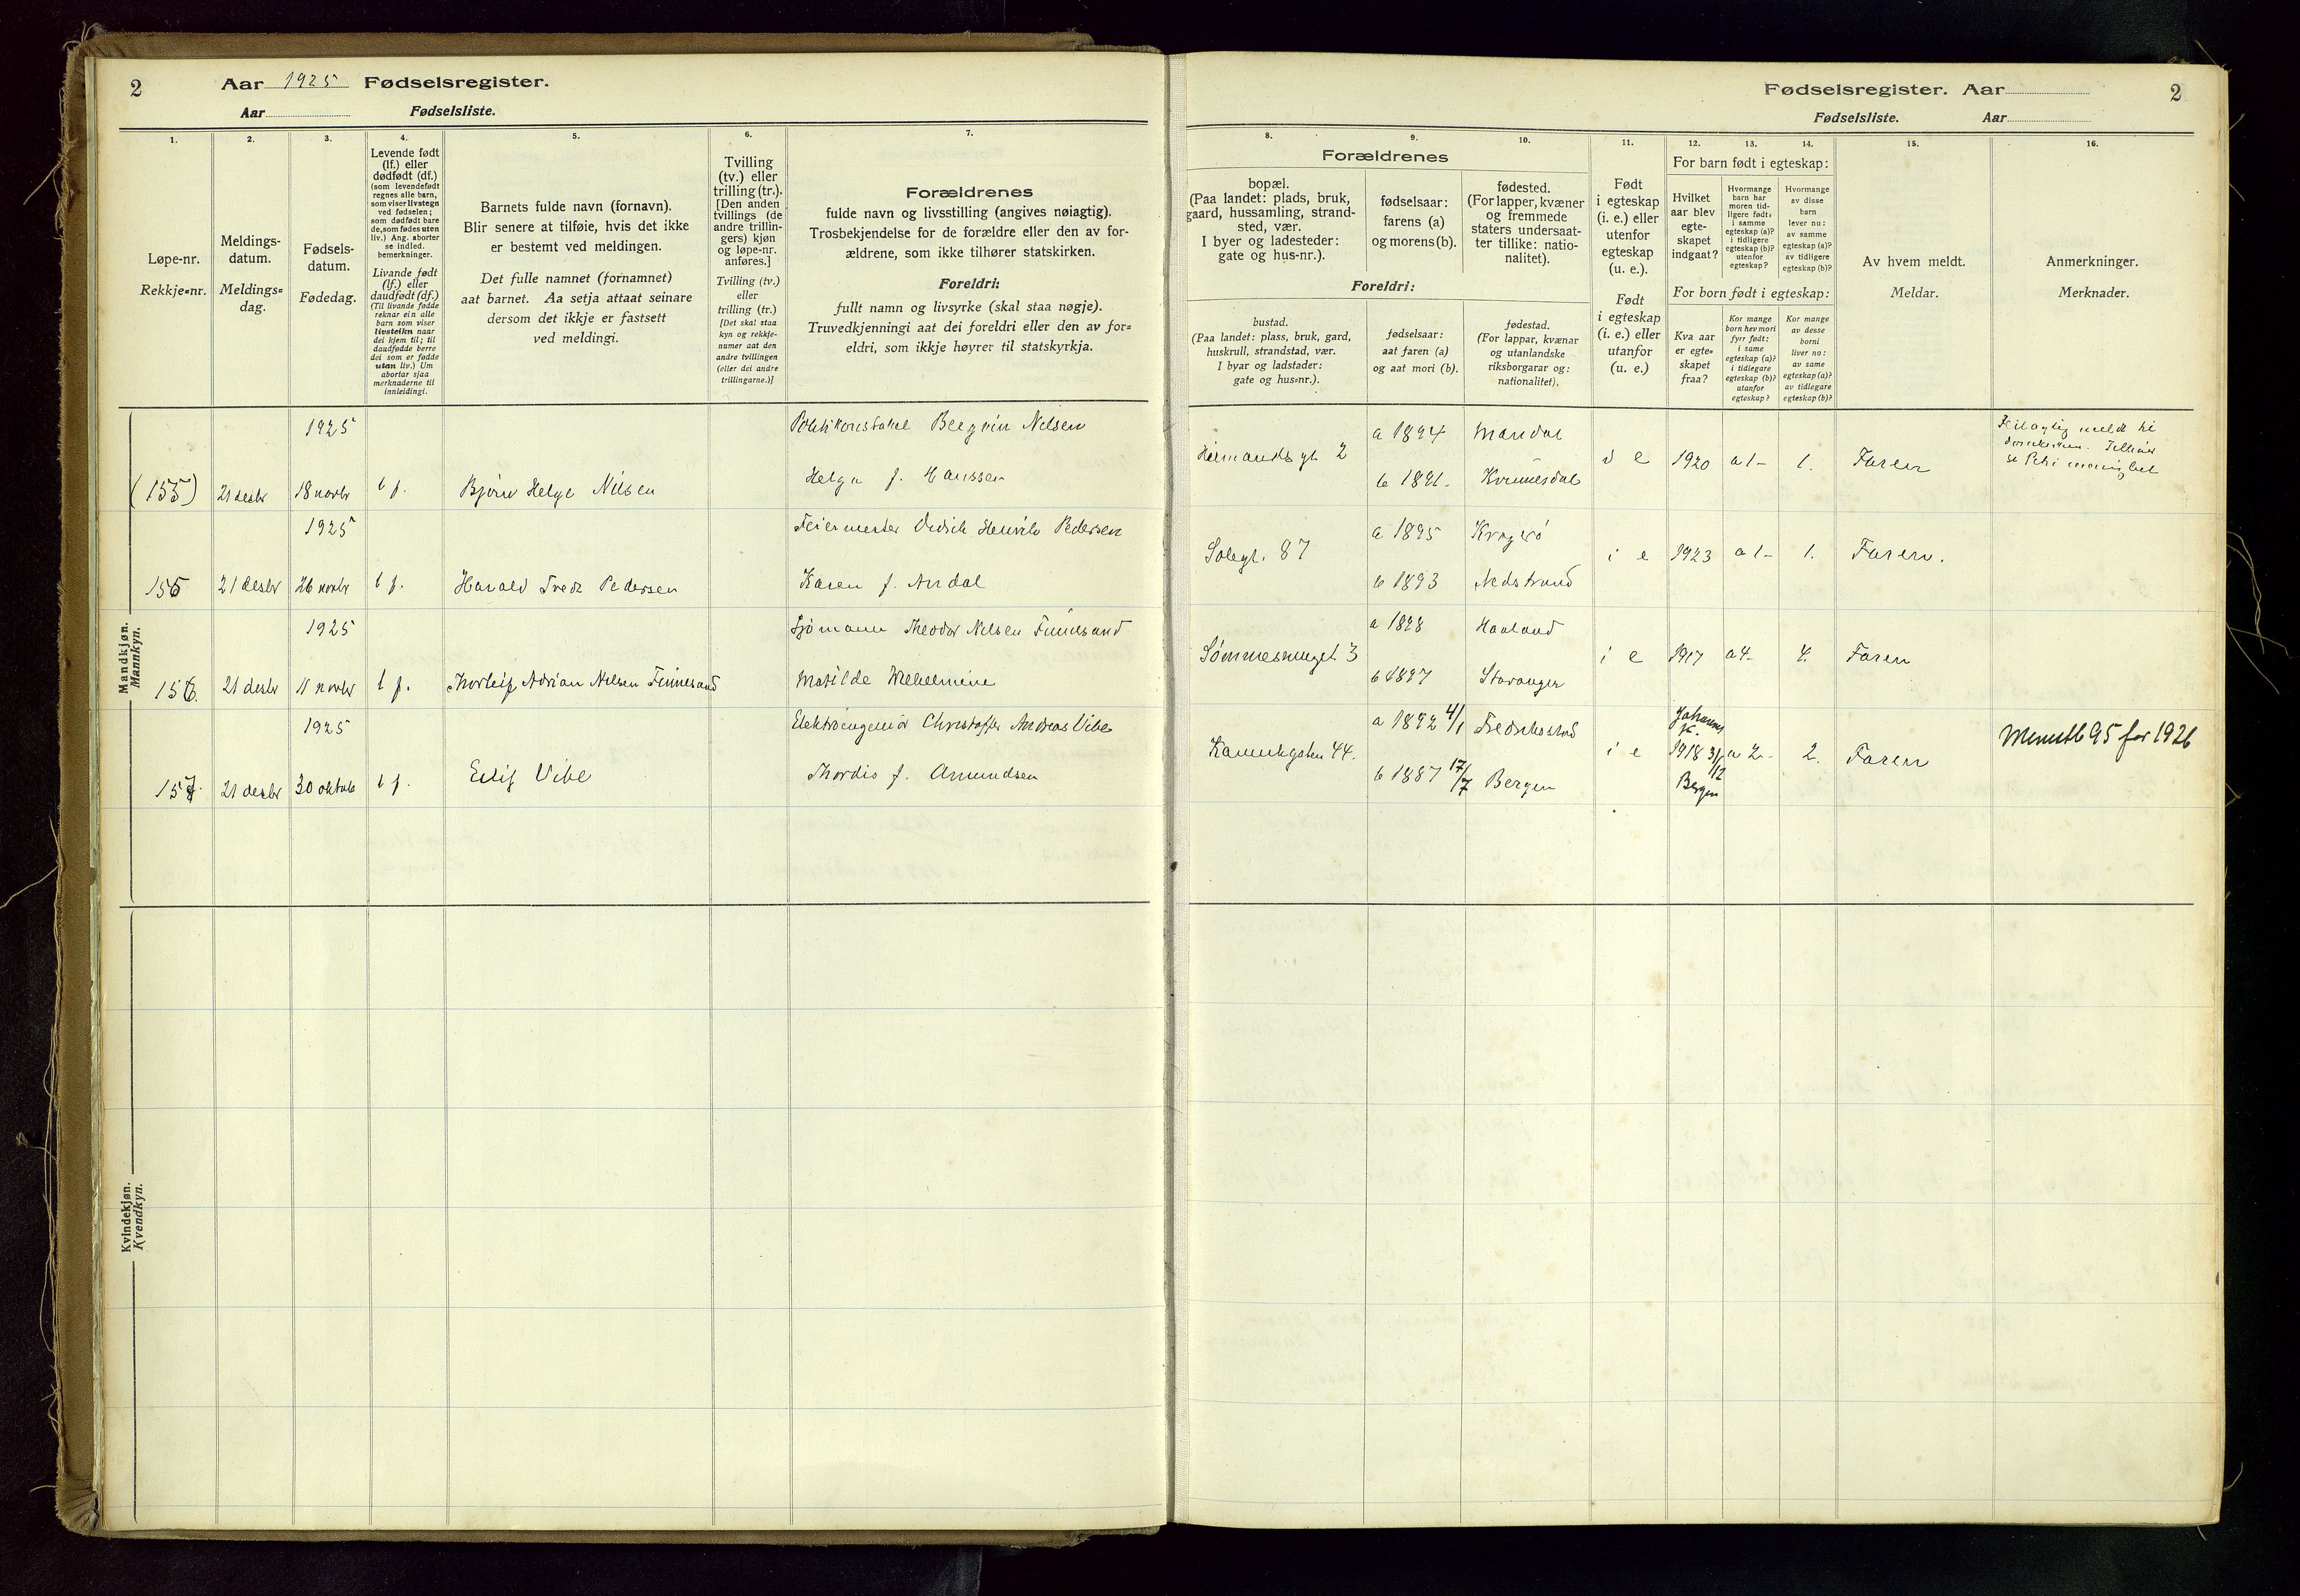 2
Aar 1925 Fødselsregister.
Aar Fødselsliste.
1.
2.
3.
4.
5.
6.
7.
Løpe-nr.
Rekkje-nr.
Meldings-
datum.
Meldings-
dag.
Fødsels-
datum.
Fødedag.
Levende født
(lf.) eller
dødfødt (df.)
(som levendefødt
regnes alle barn,
som viser livstegn
ved fødselen;
som dødfødt bare
de, som fødes uten
liv.) Ang. aborter
se indled.
bemerkninger.
Livande født
(lf.) eller
daudfødt (df.)
(Til livande fødde
reknar ein alle
barn som viser
livsteikn naar
dei kjem til; til
daudfødde berre
dei som er fødde
utan liv.) Um
abortar sjaa
merknaderne til
innleidingi.
Barnets fulde navn (fornavn).
Blir senere at tilføie, hvis det ikke
er bestemt ved meldingen.
Det fulle namnet (fornamnet)
aat barnet. Aa setja attaat seinare
dersom det ikkje er fastsett
ved meldingi.
Tvilling
(tv.) eller
trilling (tr.).
[Den anden
tvillings (de
andre trillin-
gers) kjøn
og løpe-nr.
anføres.]
Tvilling (tv.)
eller
trilling (tr.)
[Det skal staa
kyn og rekkje-
numer aat den
andre tvillingen
(eller dei andre
trillingarne.)]
Forældrenes
fulde navn og livsstilling (angives nøiagtig).
Trosbekjendelse for de forældre eller den av for-
ældrene, som ikke tilhører statskirken.
Foreldri:
fullt namn og livsyrke (skal staa nøgje).
Truvedkjenningi aat dei foreldri eller den av for-
eldri, som ikkje høyrer til statskyrkja.
Mandkjøn.
Mannkyn.
1925 Politikonstabel Bergvin Nilsen
(155) 21 desbr 18 novbr l f. Bjørn Helge Nilsen Helga f. Hanssen
1925 Feiermester Didrik Henrik Pedersen
155 21 desbr 26 novbr l f. Harald Fredr Pedersen Karen f. Årdal
1925 Sjømann Theodor Nilsen Finnesand
156. 21 desbr 11 novbr l f. Thorleif Adrian Nilsen Finnesand Matilde Wilhelmine
1925 Elektroingeniør Christoffer Andreas Vibe
157. 21 desbr 30 oktob l f. Eilif Vibe Thordis f. Amundsen
Kvindekjøn.
Kvendkyn.
Fødselsregister. Aar
2
Fødselsliste. Aar
8.
9.
10.
11.
12.
13.
14.
15.
16.
Forældrenes
bopæl.
(Paa landet: plads, bruk,
gaard, hussamling, strand-
sted, vær.
I byer og ladesteder:
gate og hus-nr.).
fødselsaar:
farens (a)
og morens (b).
fødested.
(For lapper, kvæner
og fremmede
staters undersaat-
ter tillike: natio-
nalitet).
Foreldri:
bustad.
(Paa landet: plass, bruk, gard,
huskrull, strandstad, vær.
I byar og ladstader:
gate og hus-nr.).
fødselsaar:
aat faren (a)
og aat mori (b).
fødestad.
(For lappar, kvænar
og utanlandske
riksborgarar og:
nationalitet).
Født
i egteskap
(i. e.) eller
utenfor
egteskap
(u. e.).
Født
i egteskap
(i. e.) eller
utanfor
(u. e.)
For barn født i egteskap:
Hvilket
aar blev
egte-
skapet
indgaat?
Hvormange
barn har
moren tid-
ligere født:
i samme
egteskap (a)?
i tidligere
egteskap (b)?
utenfor
egteskap?
Hvormange
av disse
barn
lever nu:
av samme
egteskap (a)?
av tidligere
egteskap (b)?
For born født i egteskap:
Kva aar
er egte-
skapet
fraa?
Kor mange
born hev mori
fyrr født:
i same
egteskap (a)?
i tidlegare
egteskap (b)?
utanfor
egteskap?
Kor mange
av desse
borni
liver no:
av same
egteskap (a)?
av tidlegare
egteskap (b)?
Av hvem meldt.
Meldar.
Anmerkninger.
Merknader.
Hermands gt. 2 a 1894 Mandal i e 1920 a 1 - 1. Faren
b 1891. Kvinesdal
Feilagtig meldt til
domkirken. Tilhører
St Petri menighet
Solegt. 87 a 1895 Kragerø i e 1923 a 1 - 1. Faren.
b 1893 Nedstrand
Sømmesmuget 3 a 1898 Haaland i e 1917 a 4 - 4. Faren
b 1897 Stavanger
Kannikgaten 44. a 1892 4/1 Fredrikstad i e Johannes
k.
1918 31/12 a 2 - 2. Faren
b 1887 17/7 Bergen Bergen
Menstb 95 for 1926